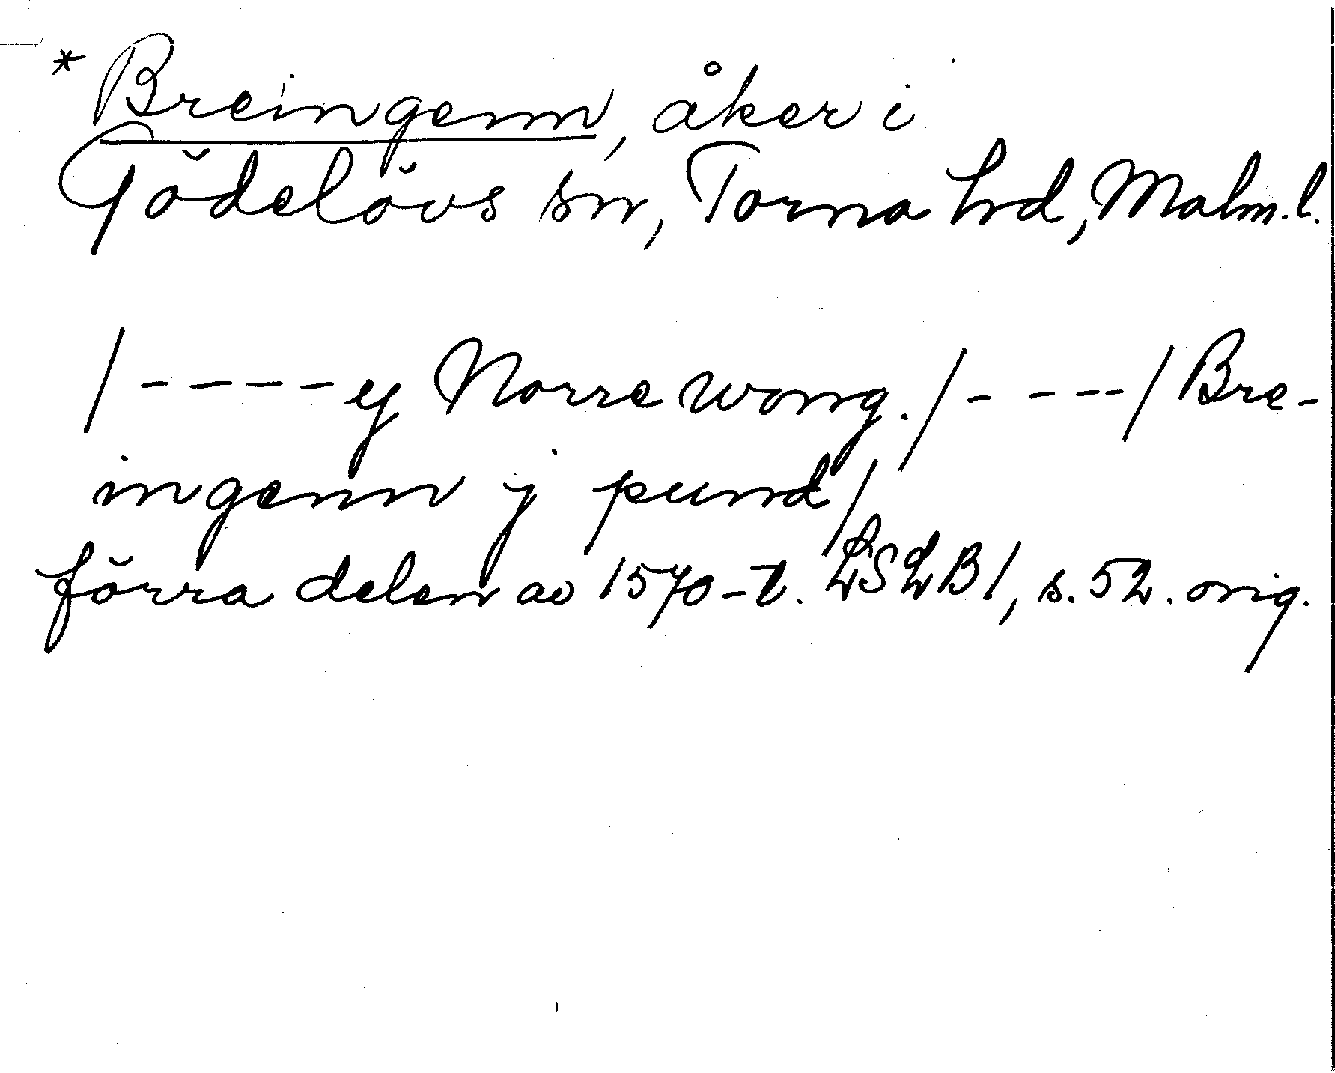 * Breingenn, åker i
Gödelövs sn, Torna hd, Malm. l.
/----ej Norre wong./- ---/ Bre-
ingenn j pund/
förra delen av 1570-t. LSLB 1, s. 52. orig.